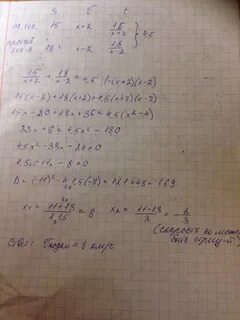 S v t
по теч. 15 x+2 15/(x+2)
против теч. 18 x-2 18/(x-2) } 4,5
15/(x+2) + 18/(x-2) = 4,5 |·(x+2)(x-2)
15(x-2)+18(x+2)=4,5(x+2)(x-2)
15x-30+18x+36=4,5(x²-4)
33x+6=4,5x²-18
4,5x²-33x-24=0
1,5x²-11x-8=0
D=(-11)²-4·1,5·(-8)=121+48=169
x₁ = (11+13)/3 = 8 x₂ = (11-13)/3 = -2/3
(скорость не может
быть отриц-й)
Ответ: 8 км/ч